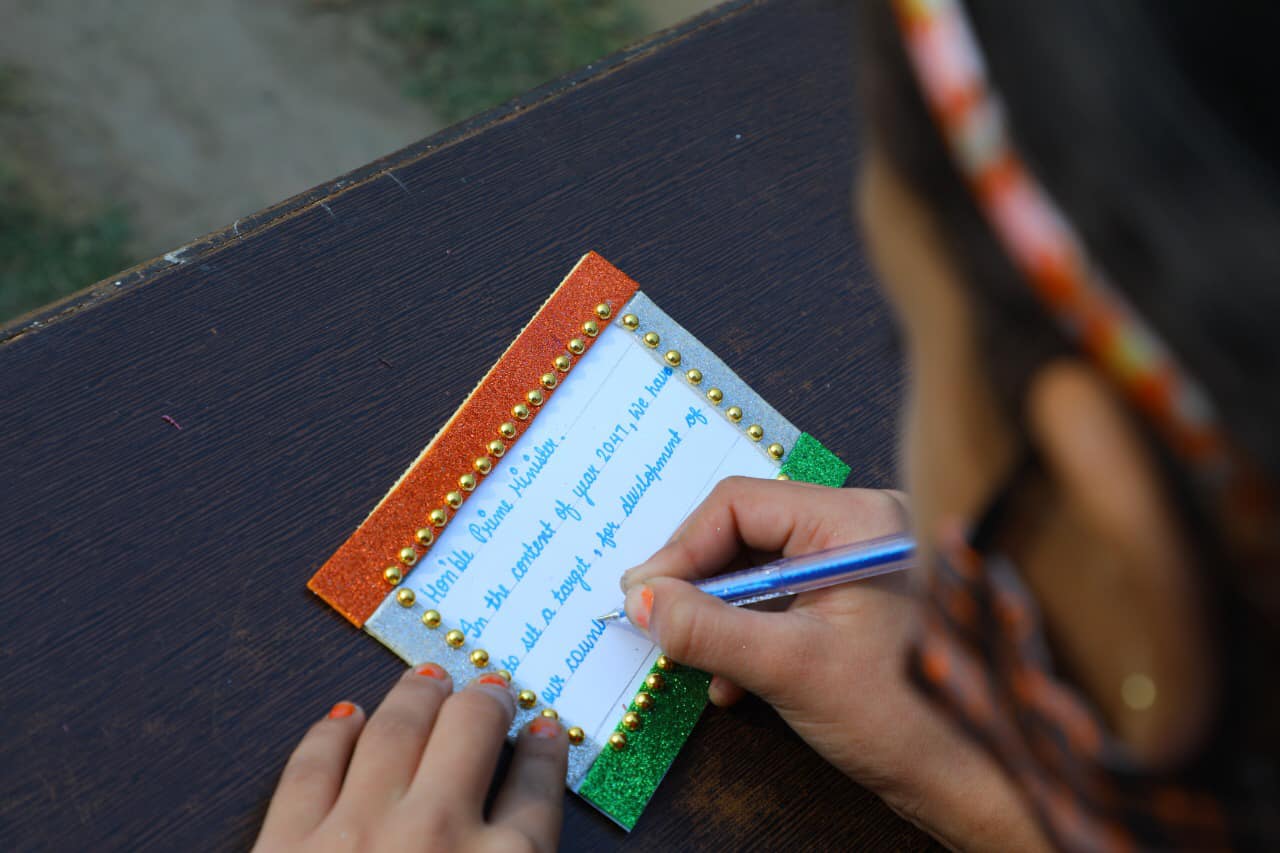 Hon'ble Prime Minister.
In the content of year 2047, We have
to set a target, for development of
our coun